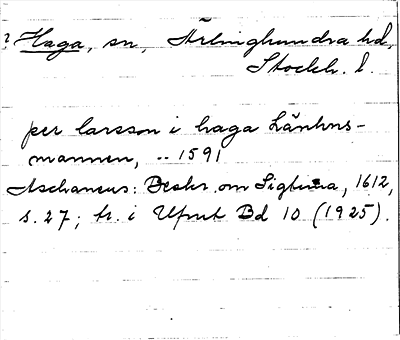 ? Haga, sn, Ärlinghundra hd,
Stockh. l.
per larsson i haga Länhns-
mannen, .. 1591
Aschaneus: Beskr. om Sigtuna, 1612,
s. 27; tr. i Ufmt Bd 10 (1925).